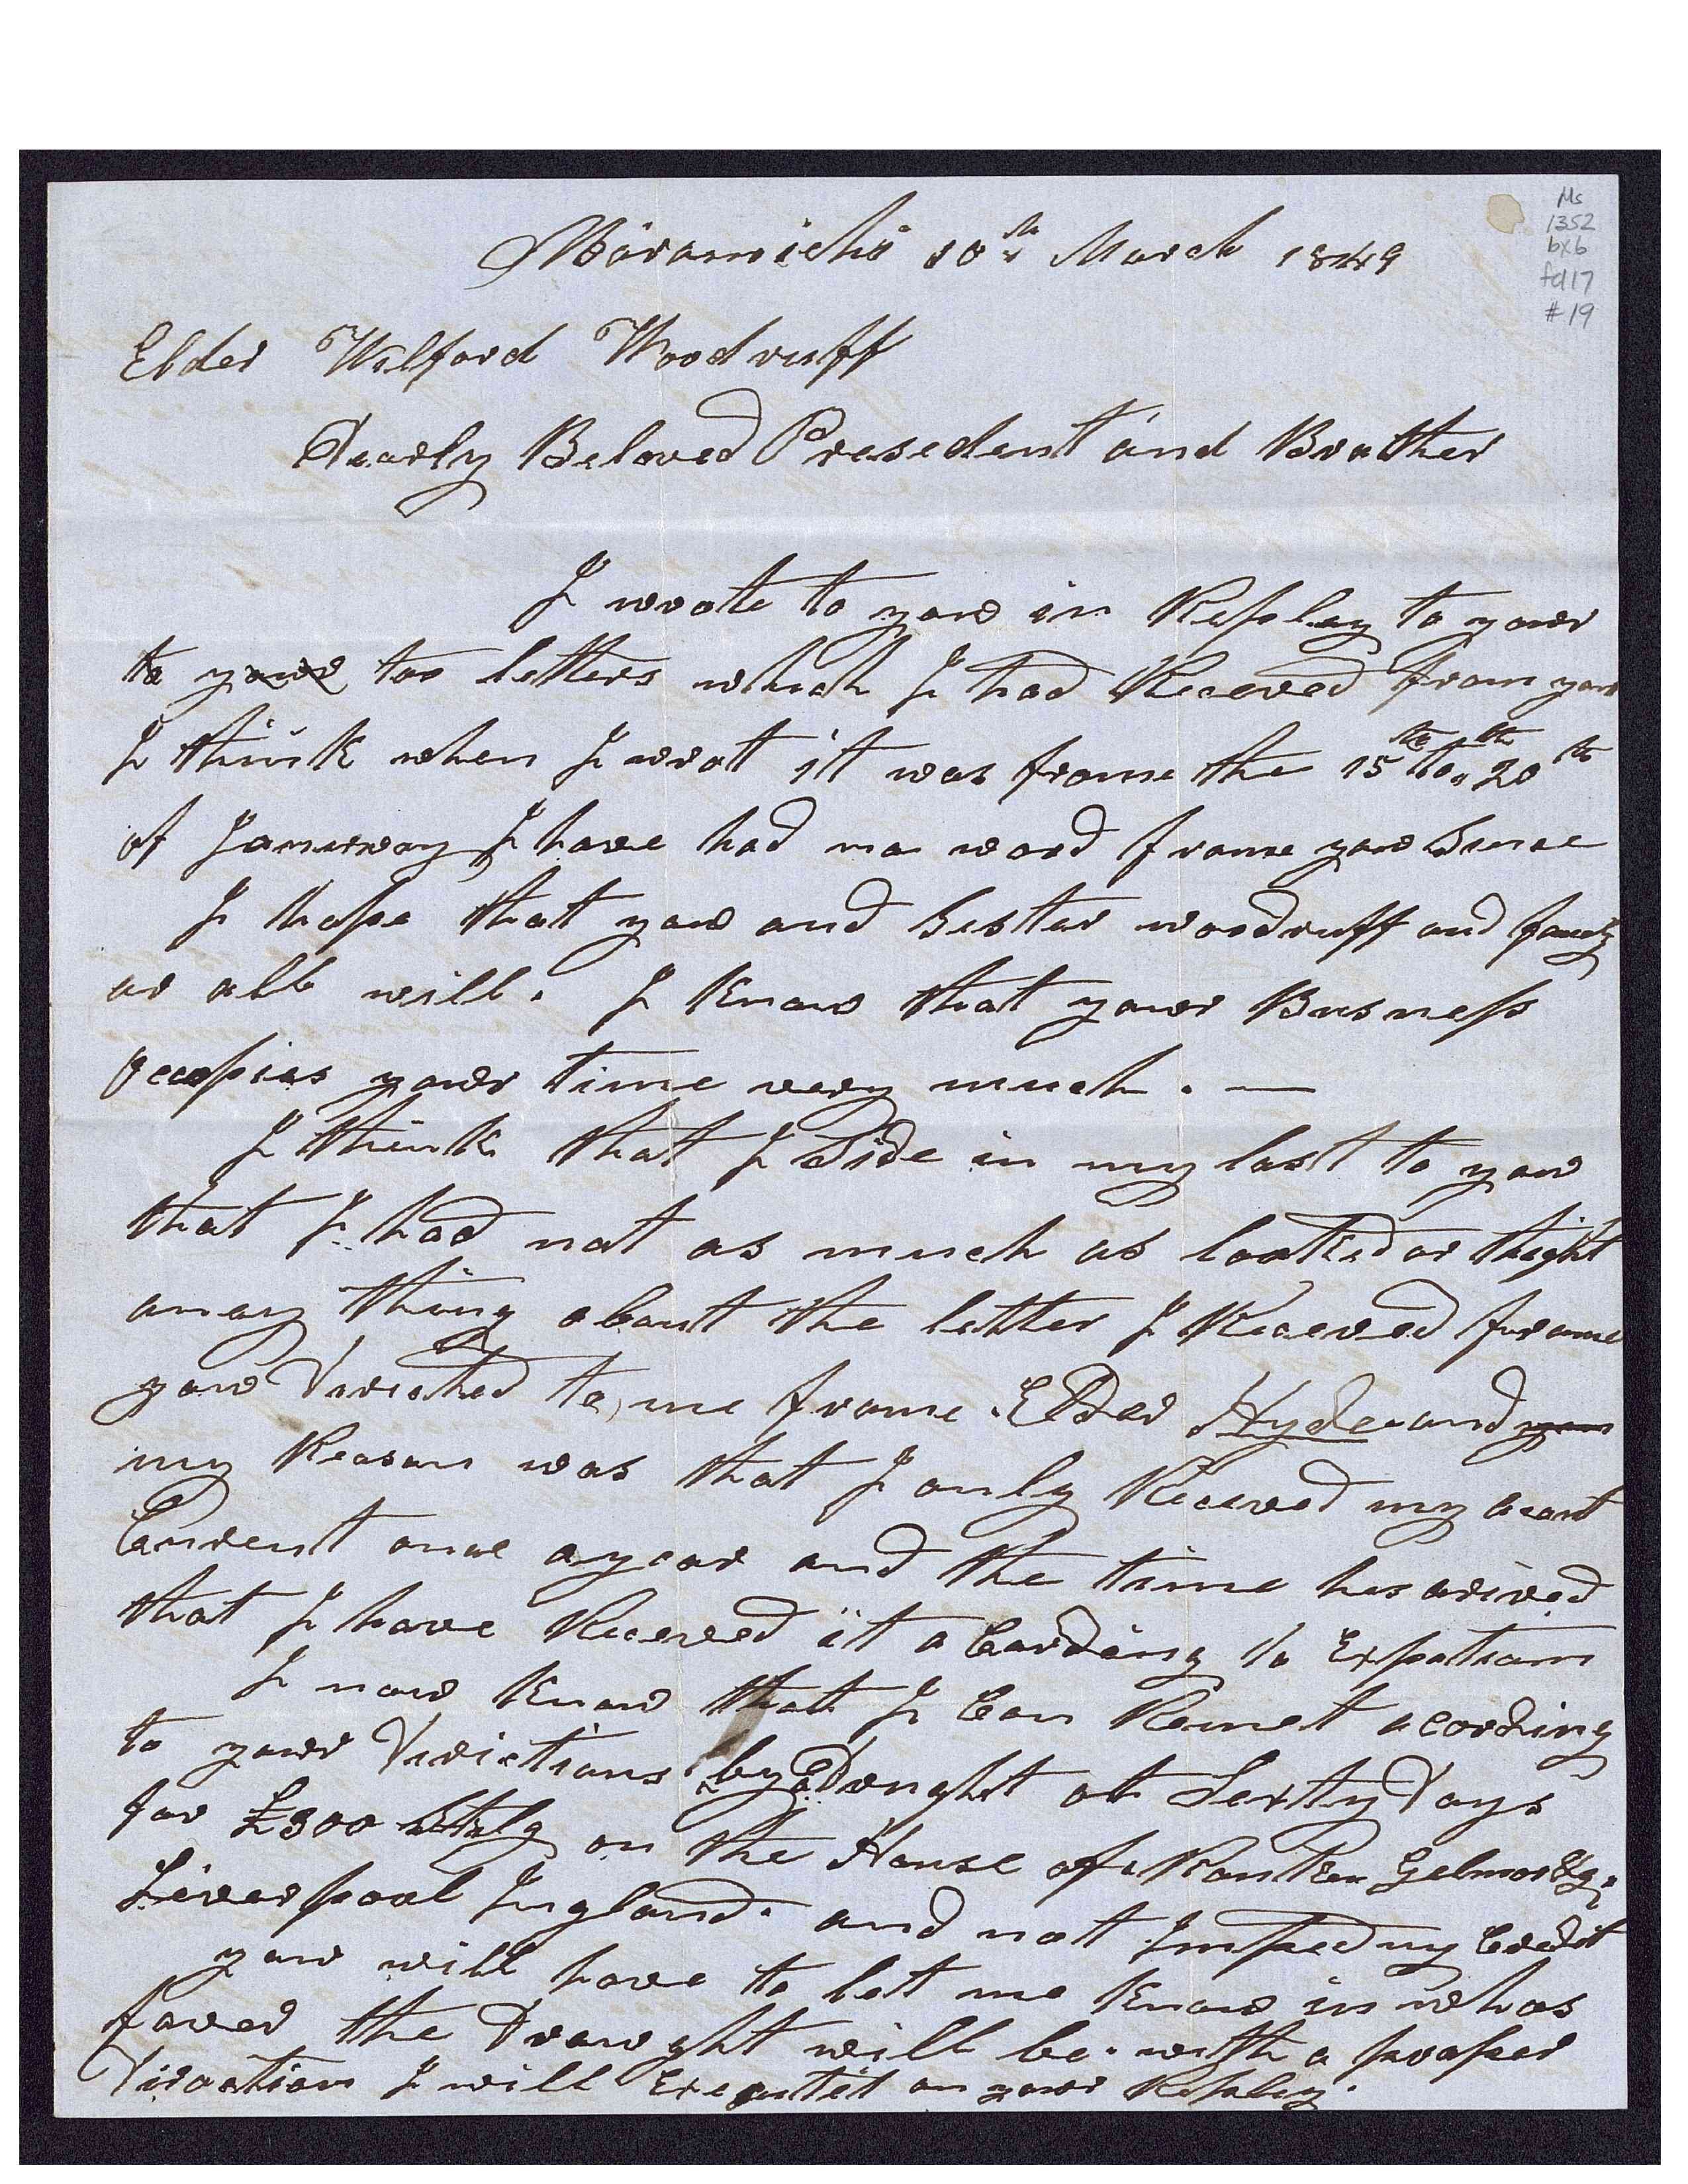 Ms
1352
bx6
fd17
#19
Miramichi 10th March 1849
Elder Wilford Woodruff
Dearly Beloved Presedent and Brother
I wrote to you in Repley to your
to your too letters which I had Receved from you
I think when I wrot it was frome the 15th to 20th
of Januway I have had no word frome you Since
I hope that you and Sister woodruff and famly
ar all will. I Know that your Busness
occopies your time very much. —
I think that I Side in my last to you
that I had not as much as looked or thight
anay thing about the letter I Receved frome
you Diricted to me frome Elder Hyde and you
my Reason was that I only Receved my acont
Current once a year and the time has arived
that I have Receved it a Cording to Expetiom
I now Know that I Can Remet acording
to your Dirictions by a Draught at Sixty Days
for £300 Stg on the House of Ranken Gelmor
Liverpool Ingland. and not Imped my Credit
you will have to let me Know in whos
faver the Drawght will be. with a proper
Diraction I will Excqutit on your Repley.